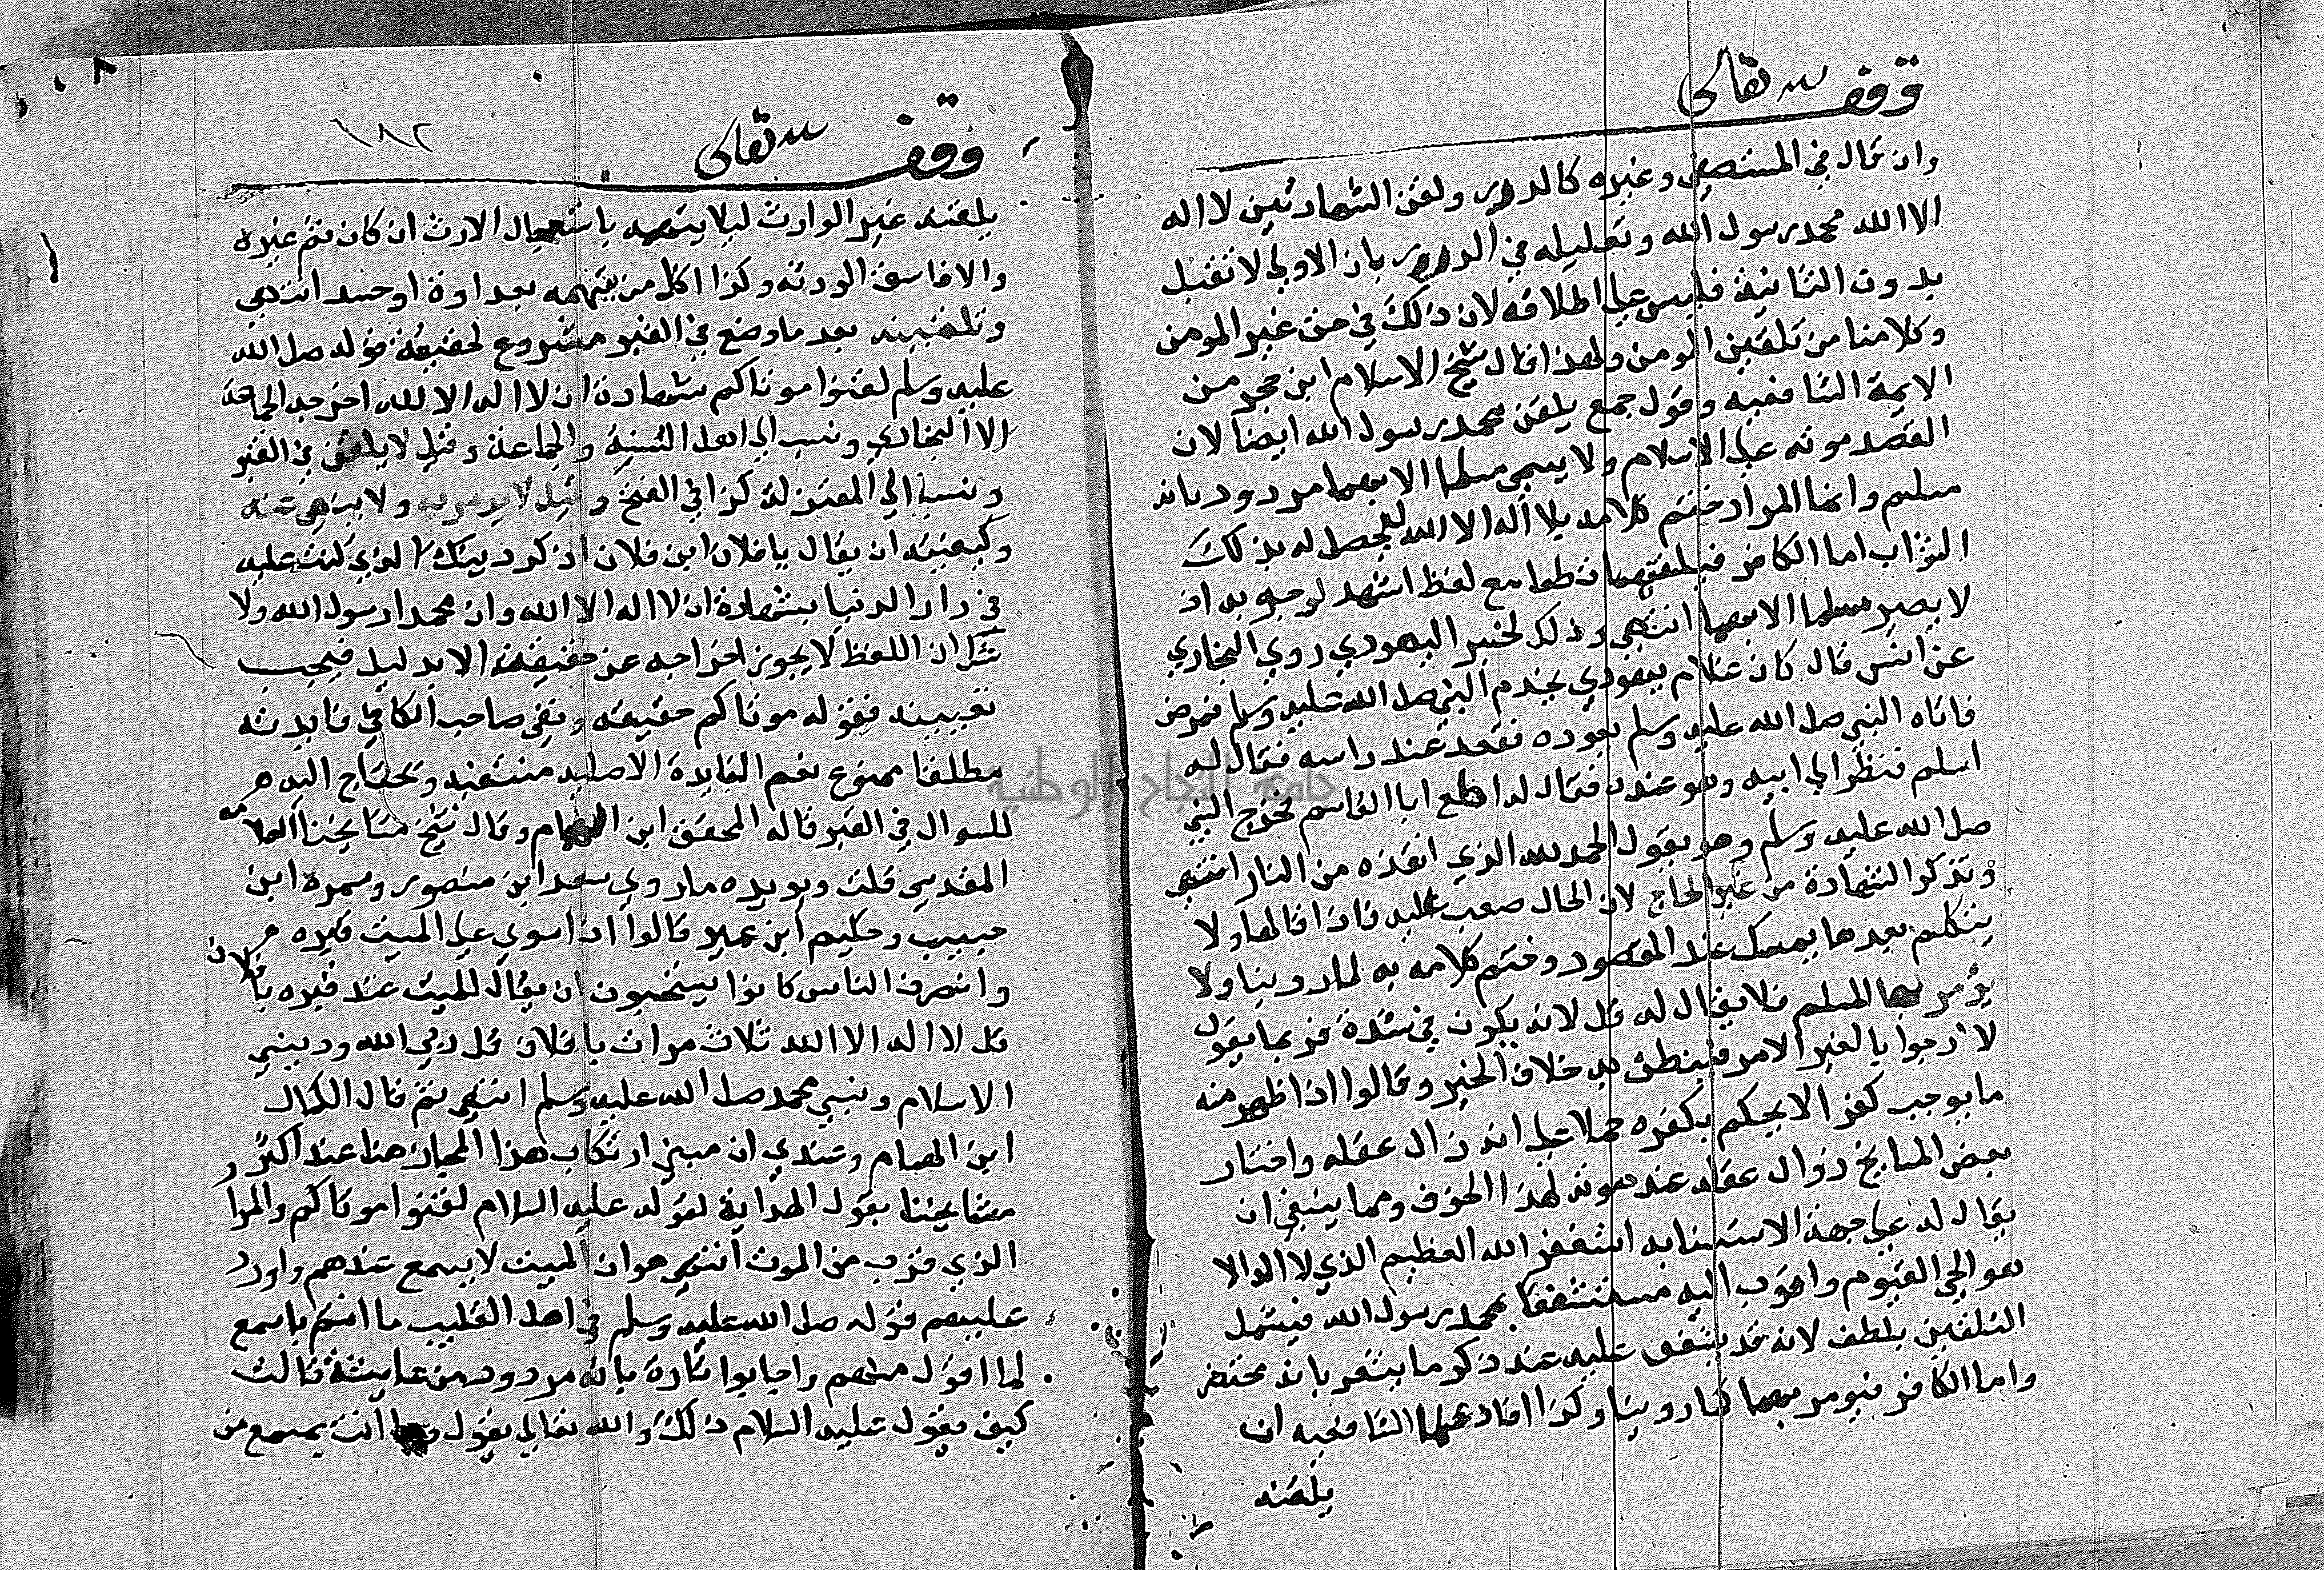 وقف لله تعالى
وان قال في المستصفى وغيره كالدرر ولقن الشهادتين لا اله
الا الله محمد رسول الله وتعليله في الدرر بان الاولى لا تقبل
بدون الثانية فليس على اطلاقه لان ذلك في حق غير المومن
وكلامنا من تلقين المومن ولهذا قال شيخ الاسلام ابن حجر من
الايمة الشافعيه وقول جمع يلقن محمد رسول الله ايضا لان
القصد موته على الاسلام ولا يسمى مسلما الا بهما مردود بانه
مسلم وانما المراد ختم كلامه بلا اله الا الله ليحصل له بذلك
الثواب اما الكافر فيلقنهما قطعا مع لفظ اشهد لوجوبه اذ
لا يصير مسلما الا بهما انتهى وذلك لخبر اليهودي روي البخاري
عن انس قال كان غلام يهودي يخدم النبي صلى الله عليه وسلم فمرض
فاتاه النبي صلى الله عليه وسلم يعوده فقعد عند راسه فقال له
اسلم فنظر الى ابيه وهو عنده فقال له اطع ابا القاسم فخرج النبي
صلى الله عليه وسلم وهو يقول الحمد لله الذي انقذه من النار انتهى
وتذكر الشهادة من غير الحاح لان الحال صعب عليه فاذا قالها ولا
يتكلم بعدها يمسك عند المقصود وختم كلامه به لما روينا ولا
يؤمر بها المسلم فلا يقال له قل لانه يكون في شدة فربما يقول
لا ارجوا بالغير الامر فينطق به خلاف الخير وقالوا اذا ظهر منه
ما يوجب كفر الا يحكم بكفره حملا على انه زال عقله واختار
بعض المشايخ زوال عقله عند موته لهذا الخوف ومما ينبغي ان
يقال له على جهة الاستتابه استغفر الله العظيم الذي لا اله الا
هو الحي القيوم واتوب اليه مستشفعا بمحمد رسول الله فيتمل
التلقين بلطف لانه قد يشفق عليه عند ذكر ما يشعر بانه محتضر
واما الكافر فيومر بهما لما روينا وكذا افاد علما الشافعيه ان
يلقنه
وقف لله تعالى ١٨٢
يلقنه غير الوارث ليلا يتهمه باستعجال الارث ان كان ثم غيره
والا فاشفق الورثه وكذا كل من يتهمه بعداوة او حسد انتهى
وتلقينه بعد ما وضع في القبر مشروع لحقيقة قوله صلى الله
عليه وسلم لقنوا موتاكم شهادة ان لا اله الا الله اخرجه الجماعة
الا البخاري ونسب الى اهل السنة والجماعة وقيل لا يلقن في القبر
ونسب الى المعتزلة كذا في الفتح وقيل لا يومر به ولا ينهى عنه
وكيفيته ان يقال يا فلان ابن فلان اذكر دينك الذي كنت عليه
في دار الدنيا بشهادة ان لا اله الا الله وان محمدا رسول الله ولا
شك ان اللفظ لا يجوز اخراجه عن حقيقته الا بدليل فيجب
تعيينه فقوله موتاكم حقيقه ونفي صاحب الكافي فايدته
مطلقا ممنوع نعم الفايدة الاصليه منتفيه ويحتاج اليه
للسوال في القبر قاله المحقق ابن الهمام وقال شيخ مشايخنا العلامه
المقدسي قلت ويويده ما روي سعد ابن منصور وسمرة ابن
حبيب وحكيم ابن عمير قالوا اذا سوي على الميت قبره
وانصرف الناس كانوا يستحبون ان يقال للميت عند قبره يا فلان
قل لا اله الا الله ثلاث مرات يا فلان قل ربي الله وديني
الاسلام ونبيي محمد صلى الله عليه وسلم انتهى ثم قال الكمال
ابن الهمام وعندي ان مبنى ارتكاب هذا المجاز هنا عند اكثر
مشايخنا بقول الهداية لقوله عليه السلام لقنوا موتاكم والمراد
الذي قرب من الموت انتهى هو ان الميت لا يسمع عندهم واورد
عليهم قوله صلى الله عليه وسلم في اهل القليب ما انتم باسمع
لما اقول منهم واجابوا تارة بانه مردود من عايشة قالت
كيف يقول عليه السلام ذلك والله تعالى يقول وما انت بمسمع من
جامعة النجاح الوطنية